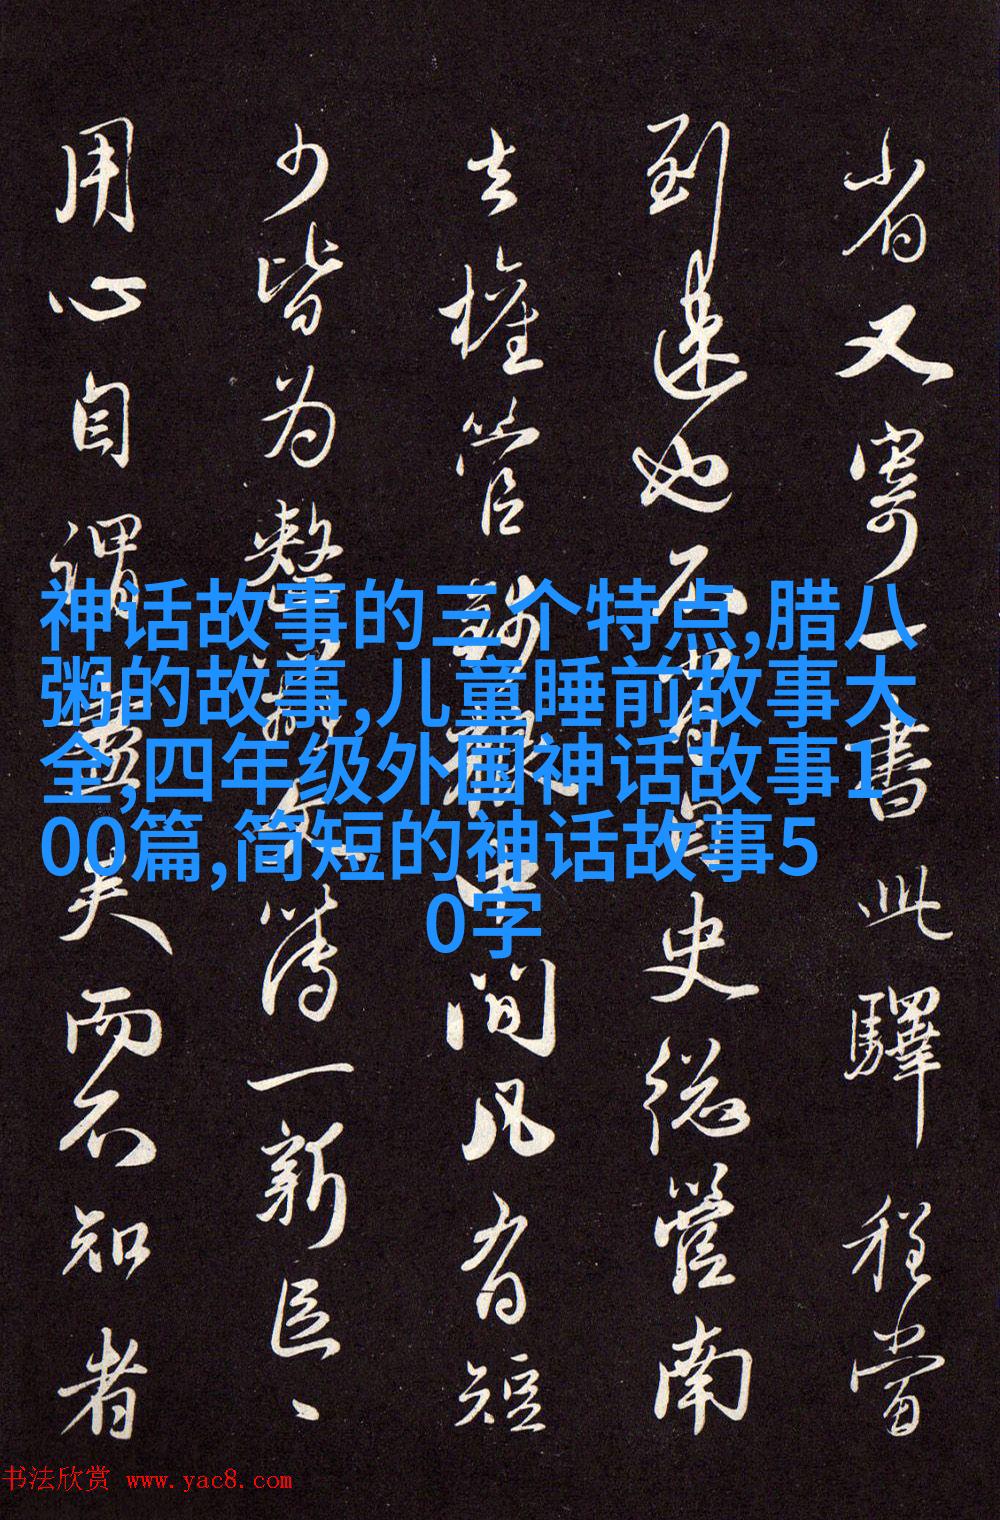 省又寄一书此驿程当
到达也不
史总管南
去权管
间凡有短
少皆为整
簿一新臣、
用心自谓
夫而不知者
神话故事的三个特点,腊八
粥的故事,儿童睡前故事大
全,四年级外国神话故事1
00篇,简短的神话故事5
0字
书法欣赏 www.yac8.com